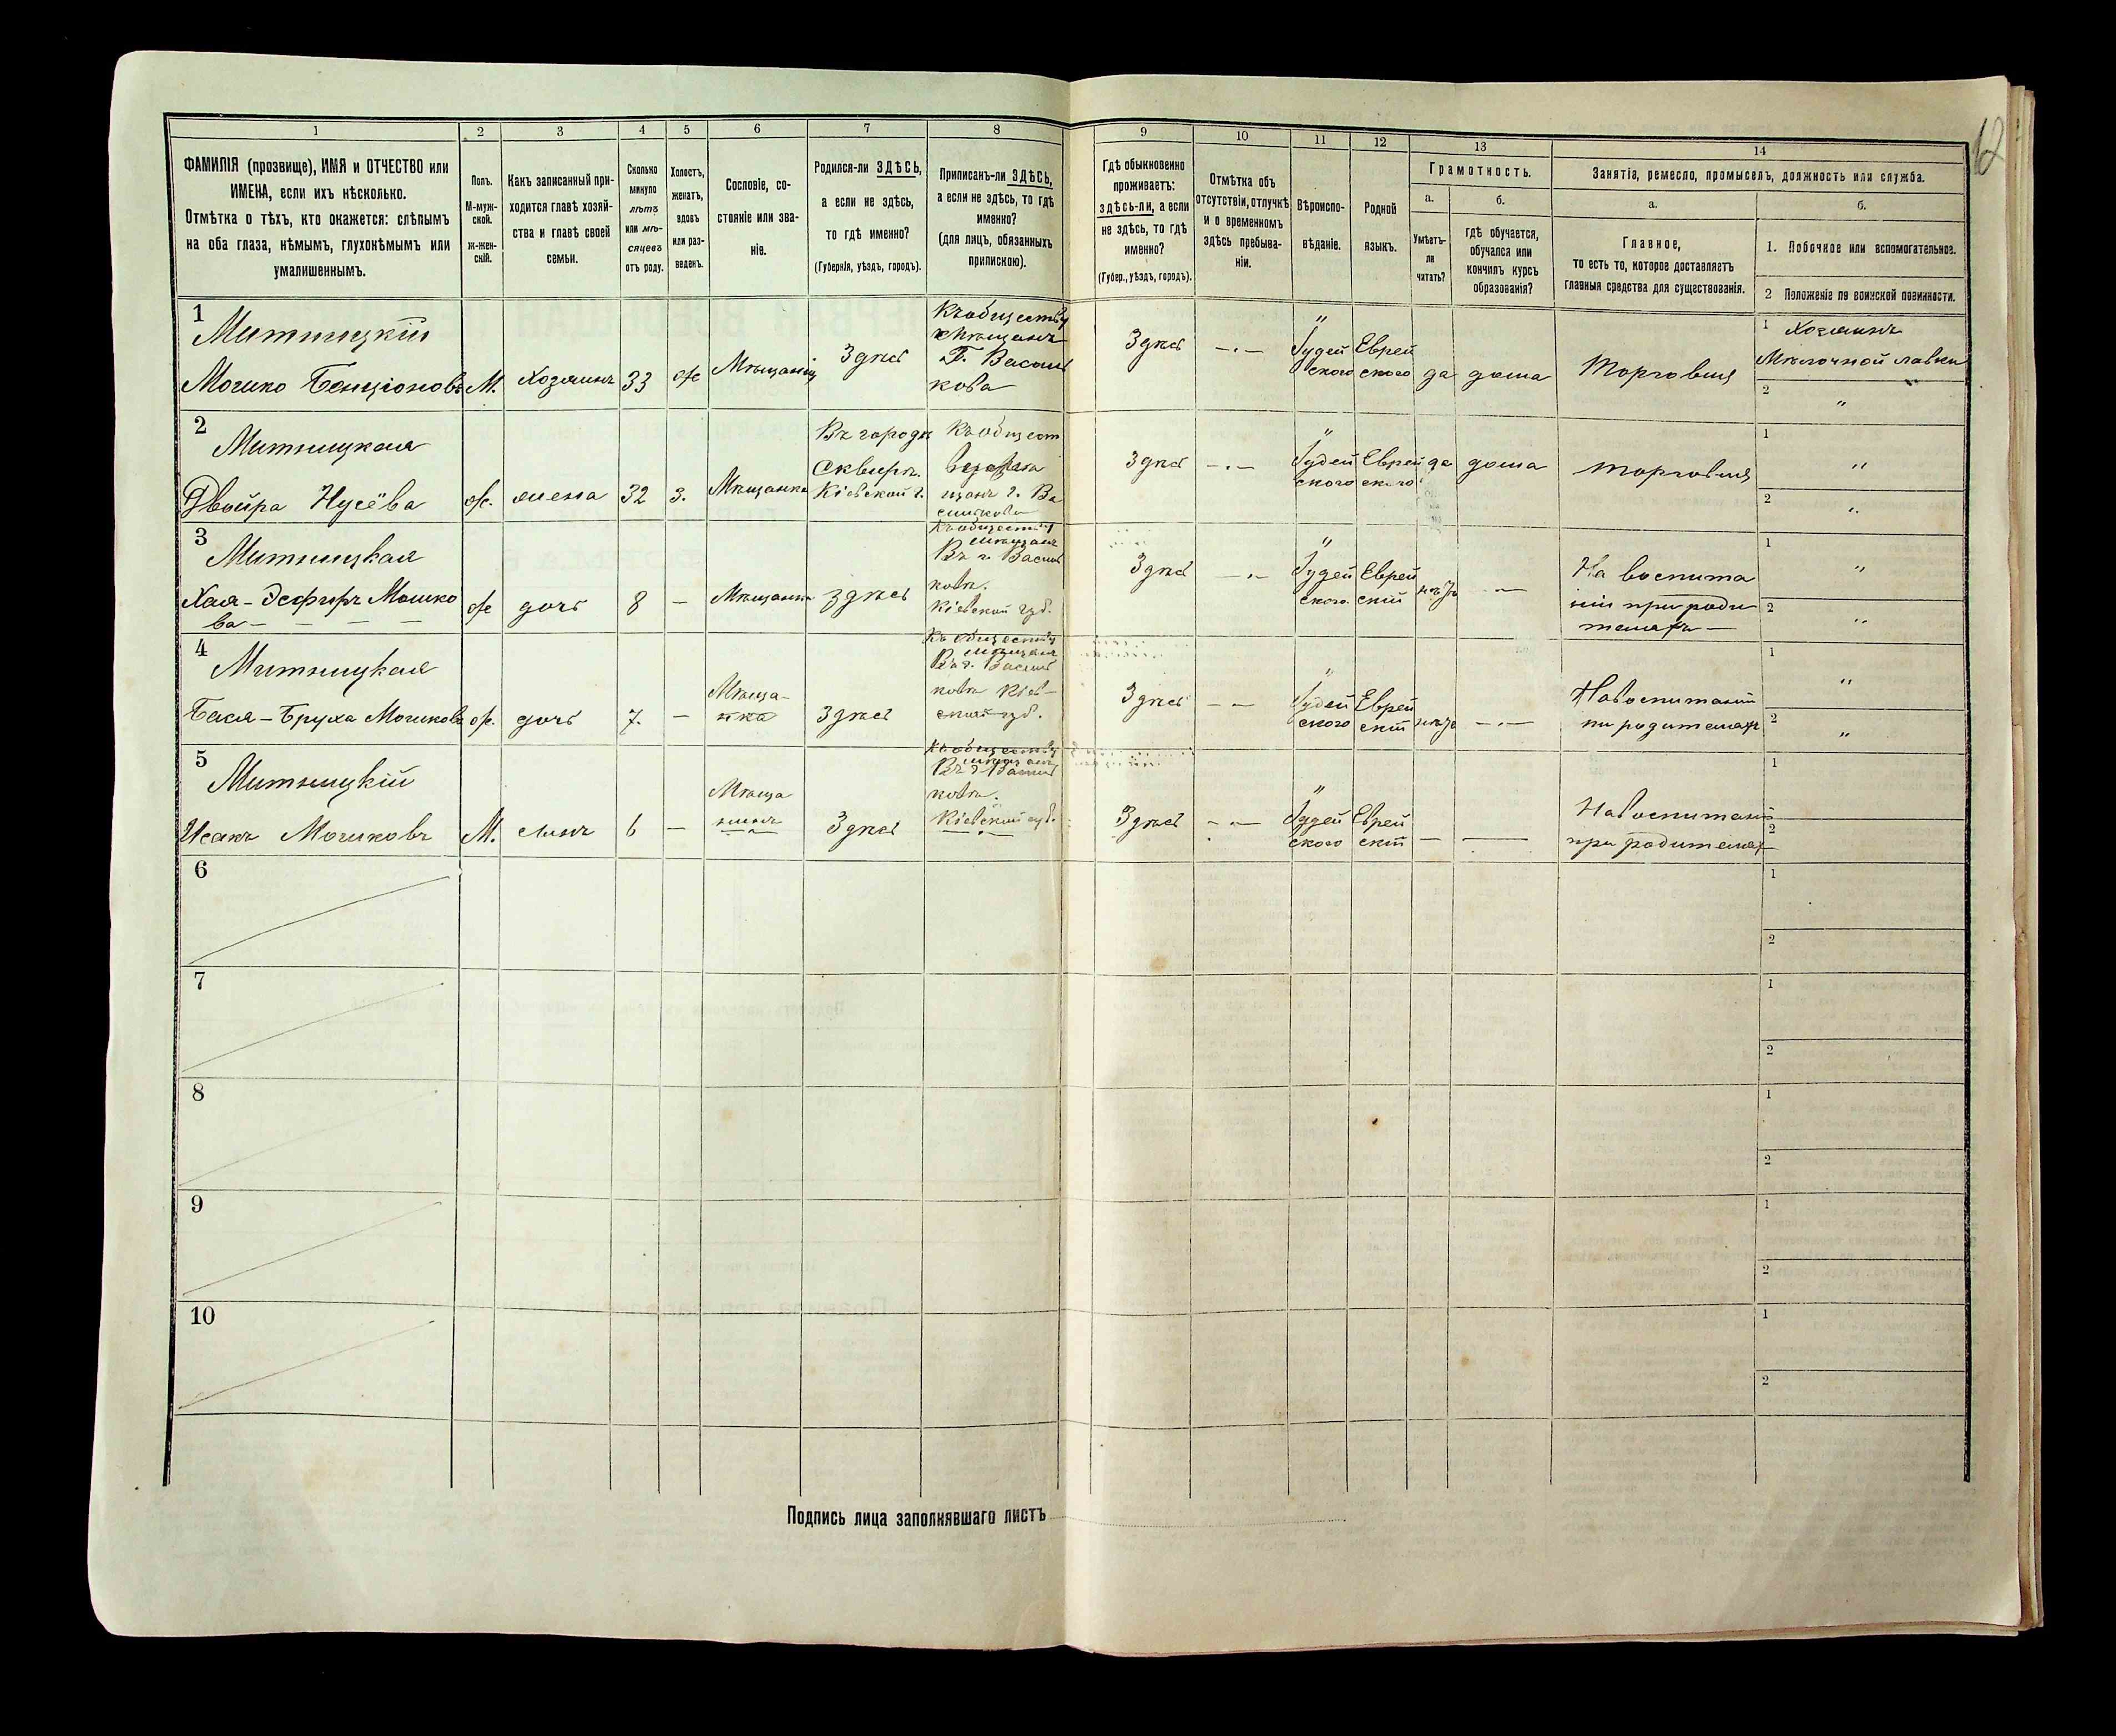 12
1 2 3 4 5 6 7 8 9 10 11 12 13 14
ФАМИЛІЯ (прозвище), ИМЯ и ОТЧЕСТВО или
ИМЕНА, если ихъ нѣсколько.
Отмѣтка о тѣхъ, кто окажется: слѣпымъ
на оба глаза, нѣмымъ, глухонѣмымъ или
умалишеннымъ.
Полъ.
М-муж-
ской.
Ж-жен-
скій.
Какъ записанный при-
ходится главѣ хозяй-
ства и главѣ своей
семьи.
Сколько
минуло
лѣтъ
или мѣ-
сяцевъ
отъ роду.
Холостъ,
женатъ,
вдовъ
или раз-
веденъ.
Сословіе, со-
стояніе или зва-
ніе.
Родился-ли ЗДѢСЬ,
а если не здѣсь,
то гдѣ именно?
(Губернія, уѣздъ, городъ).
Приписанъ-ли ЗДѢСЬ,
а если не здѣсь, то гдѣ
именно?
(для лицъ, обязанныхъ
припискою).
Гдѣ обыкновенно
проживаетъ:
здѣсь-ли, а если
не здѣсь, то гдѣ
именно?
(Губер., уѣздъ, городъ).
Отмѣтка объ
отсутствіи, отлучкѣ
и о временномъ
здѣсь пребыва-
ніи.
Вѣроиспо-
вѣданіе.
Родной
языкъ.
Грамотность.
а.
Умѣетъ-
ли
читать?
б.
гдѣ обучается,
обучался или
кончилъ курсъ
образованія?
Занятіе, ремесло, промыселъ, должность или служба.
а.
Главное,
то есть то, которое доставляетъ
главныя средства для существованія.
б.
1. Побочное или вспомогательное.
2 Положеніе по воинской повинности.
1
Митницкій
Мошко Бенціоновъ М. Хозяинъ 33 ж Мѣщанинъ Здѣсь
Къ обществу
Мѣщанъ
Г. Василь
кова
Здѣсь
Іудей
ского
Еврей
ского
да дома Торговля
1 Хозяинъ
Мѣлочной лавки
2 "
2
Митницкая
Двойра Нусёва ж. жена 32 з. Мѣщанка
Въ городѣ
Сквирѣ
Кіевской г.
Къ общест
щанъ г. Ва
силькова
Здѣсь
Іудей
ского
Еврей
ского
да дома торговля
1 "
2 "
3
Митницкая
Хая-Эсфирь Мошко
ва
ж дочь 8 — Мѣщанка здѣсь
Къ обществу
Мѣщанъ
Въ г. Василь
ковѣ.
Кіевской губ.
Здѣсь
Іудей
ского.
Еврей
скій
нѣтъ
На воспита
ніи при роди
теляхъ
1 "
2 "
4
Митницкая
Бася-Бруха Мошкова ж. дочь 7. —
Мѣща-
нка
Здѣсь
Къ обществу
мѣщанъ
Въ г. Василь
ковѣ Кіев-
ской губ.
Здѣсь
Іудей
ского
Еврей
скій
нѣтъ
На воспитаніи
пи родителяхъ
1 "
2 "
5
Митницкій
Исакъ Мошковъ М. сынъ 6 —
Мѣща
нинъ
Здѣсь
Къ обществу
мѣщанъ
Въ г. Василь
ковѣ.
Кіевской губ.
Здѣсь
Іудей
ского
Еврей
скій
На воспитаніи
при родителяхъ
1
2
6
1
2
7
1
2
8
1
2
9
1
2
10
1
2
Подпись лица заполнявшаго листъ